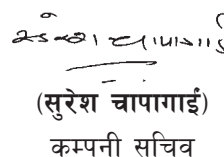 (सुरेश चापागाईं)
कम्पनी सचिव